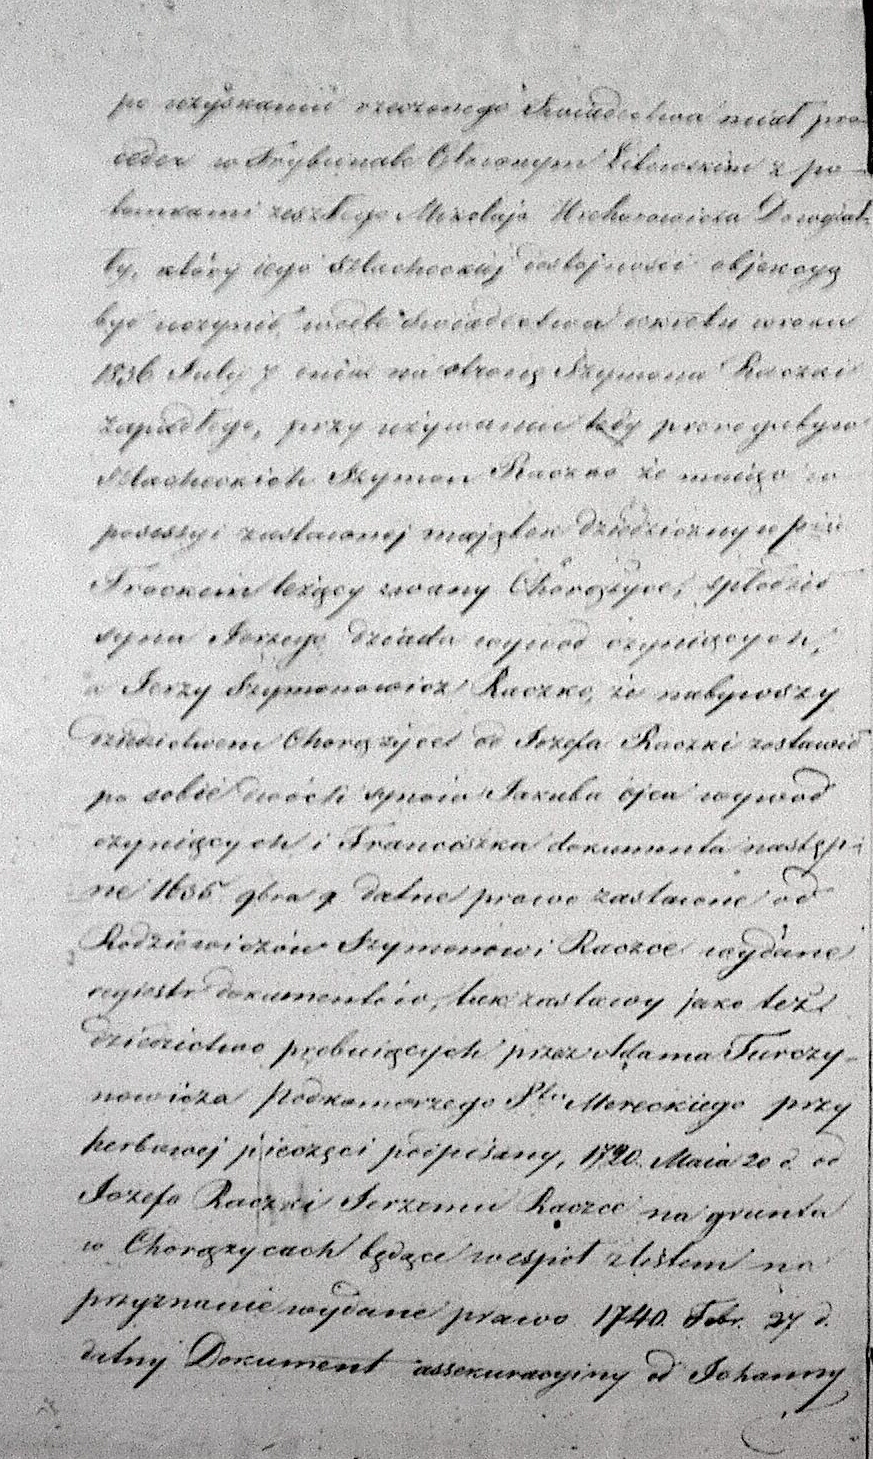 po uzyskaniu rzeczonego Swiadectwa miał pro-
ceder w Trybunale Głównym Litewskim z po-
tomkami zeszłego Mikołaja Dowgiał-
ły, który iego Szlacheckiéj dostojności objekcyą
był uczynił, wedle swiadectwa dekretu w roku
1636 July 7 dnia na stronę Szymona Raczki
zapadłego, przy używaniu tedy prerogatyw
Szlacheckich Szymon Raczko że maiąc w
possessyi zastawnej majątek dziedziczny w pcie
Trockim leżący zwany Chorążyce, spłodził
syna Jerzego dziada wywod czyniących,
a Jerzy Szymonowicz Raczko, że nabywszy
dziedictwem Chorążyce od Jozefa Raczki zostawił
po sobie dwóch synów Jakuba ojca wywod
czyniących i Franciszka dokumenta następ-
ne 1636 9bra 9 datne prawo zastawne od
Rodziewiczów Szymonowi Raczce wydane
regiestr dokumentów, tak zastawy jako też
dziedzictwo probuiących przez Adama Turczy-
nowicza Podkomorzego Ptu Mereckiego przy
herbowej pieczęci podpisany, 1720. Maia 20 d. od
Jozefa Raczki Jerzemu Raczce na grunta
w Chorążycach będące wespół z listem na
przyznanie wydane prawo 1740. Febr. 27 d.
datny Dokument assekuracyiny od Johanny